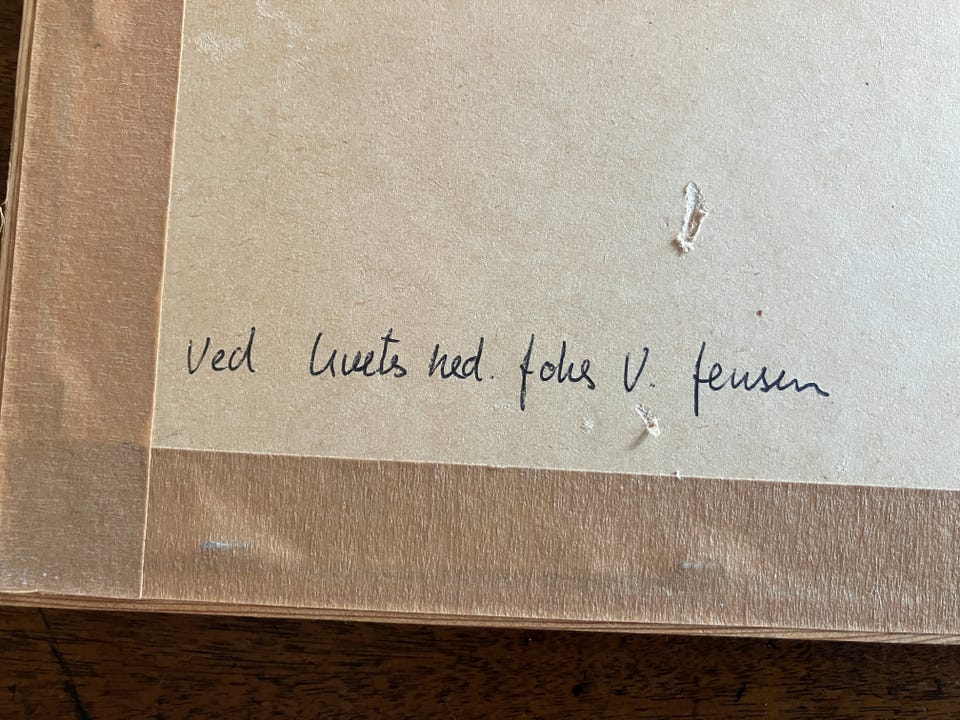 Ved Livets bred. Johs V. Jensen